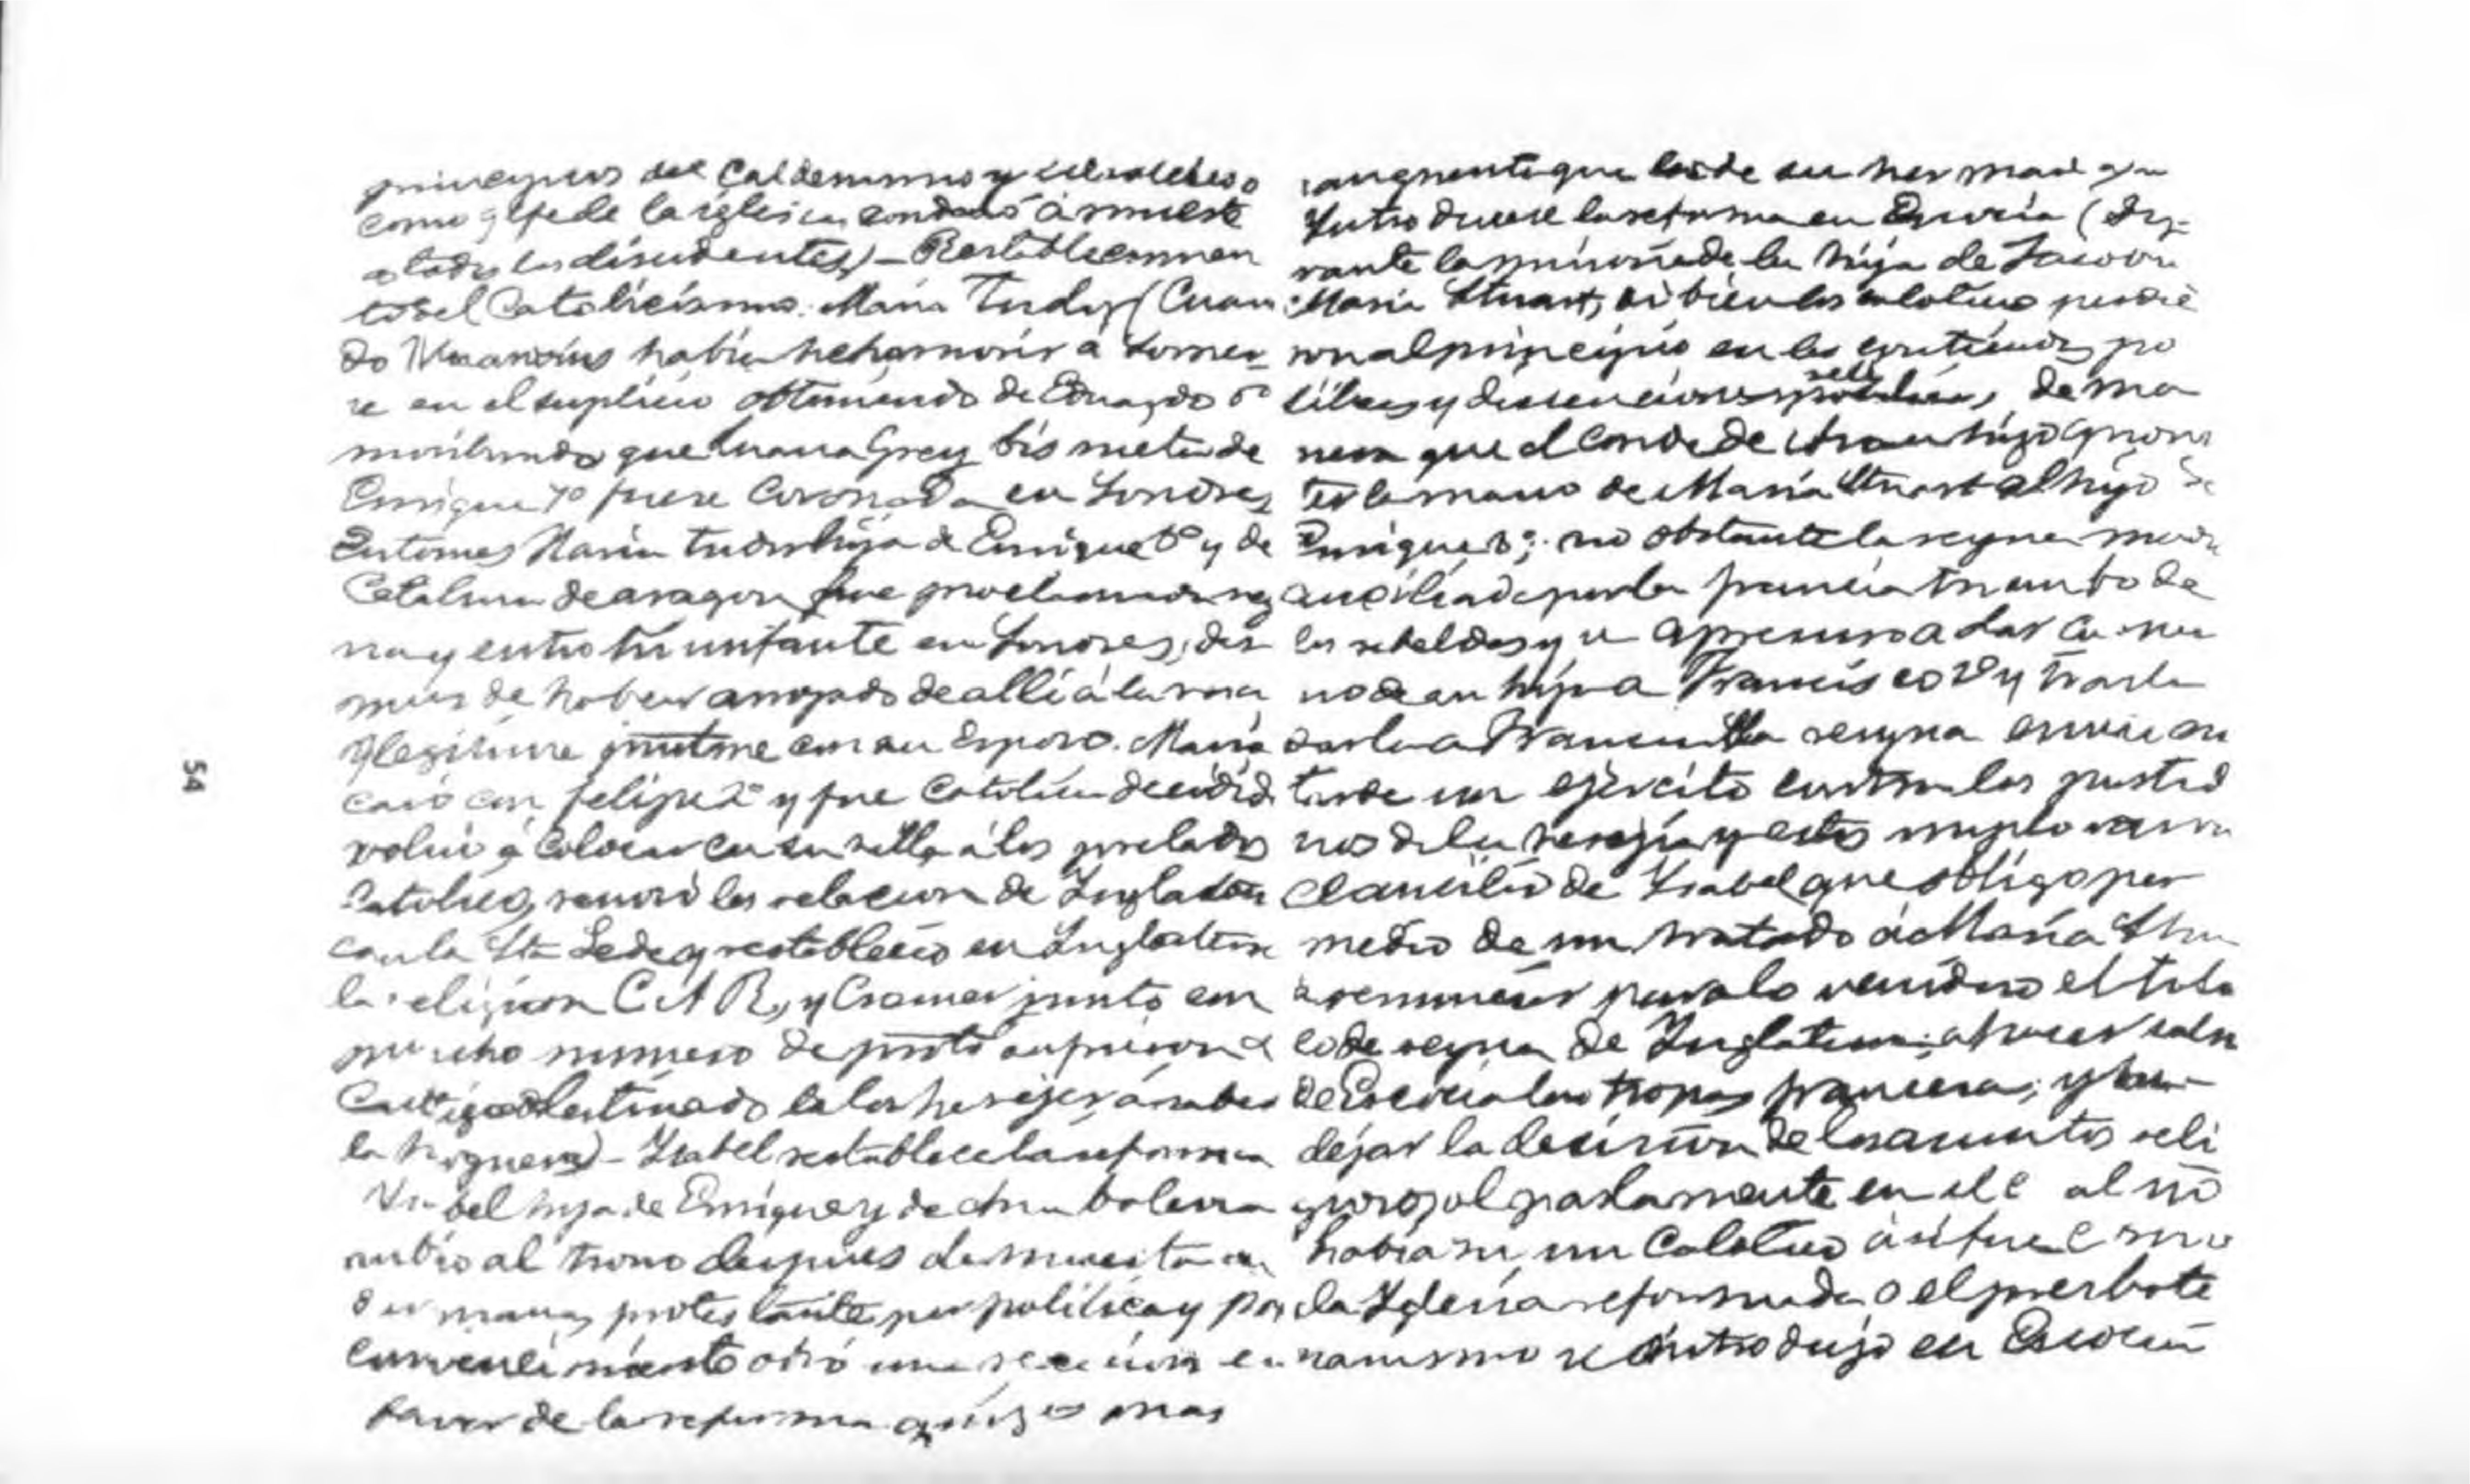 principios del Calvinismo y
como gefe de la iglesia condenó á muerte
a todos los disidentes) - Restablecimien
to del Catolicismo. María Tudor (Cuan
do había hecho morir a Somer-
se en el suplicio obteniendo de Eduardo 6º
moribundo que Juana Grey bisnieta de
Enrique 7º fuese Coronada en Londres
Entonces María Tudor hija de Enrique 8º y de
Catalina de aragon fue proclamada rey
na y entro triunfante en Londres, des
pues de haber arrojado de alli á la reina
ylegitima con su esposo. María
casó con felipe 2º y fue Católica decidid
volvió á Colocar en su silla á los prelados
Católicos, renovó las relacion de Inglaterra
con la Sta Sede y restableció en Inglaterra
la religion C A R, y Cramer junto con
mucho numero de sufrieron el
Castigo destinado a los herejes á saber
la hoguera) - Isabel restablece la reforma
Isabel hija de Enrique y de Ana bolena
subió al trono despues de muerta su
hermana, protestante por política y por
convencimiento obró una reaccion en
favor de la reforma quizas mas
sangrienta que las de su hermana
Introducese la reforma en Escocia (Du-
rante la minoria de la hija de Jacobo
María Stuart, si bien los catolicos perdie
ron al principio en las contiendas po
liticas y disenciones reli, de ma
nera que el Conde de hizo prome
ter la mano de María Stuart al hijo de
Enrique 8º; no obstante la reyna madre
auxiliada por la francia triunfo de
los rebeldes y se apresuro a dar la ma
no de su hija a Francisco 2º y trasla
darla a Francia. La reyna envió mas
tarde un ejército contra los partid
rios de la heregia y estos imploraron
el ausilio de Isabel que obligo por
medio de un tratado á María Stu
a renunciar para lo venidero el titu
lo de reyna de Inglaterra; a hacer salir
de Escocia las tropas francesas; y a
dejar la decision de los asuntos reli
giosos al parlamento en el c al no
habia ni un Catolico así fue
la Yglesia reformada o el presbite
rianismo se introdujo en Escocia
54